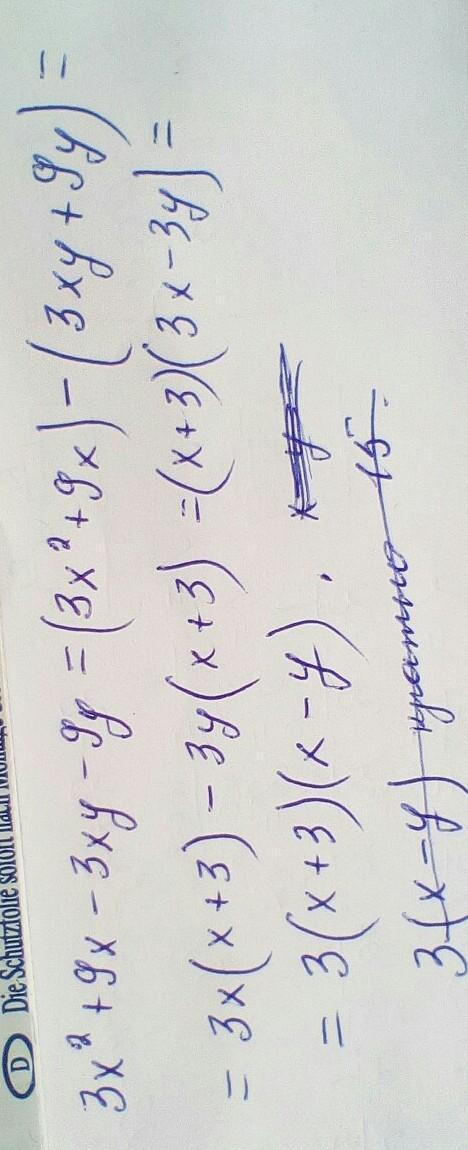 D Die Schutzfolie sofort nach
3x² + 9x - 3xy - 9y = (3x² + 9x) - (3xy + 9y) =
= 3x(x + 3) - 3y(x + 3) = (x + 3)(3x - 3y) =
= 3(x + 3)(x - y).
3(x - y) кратно 15.